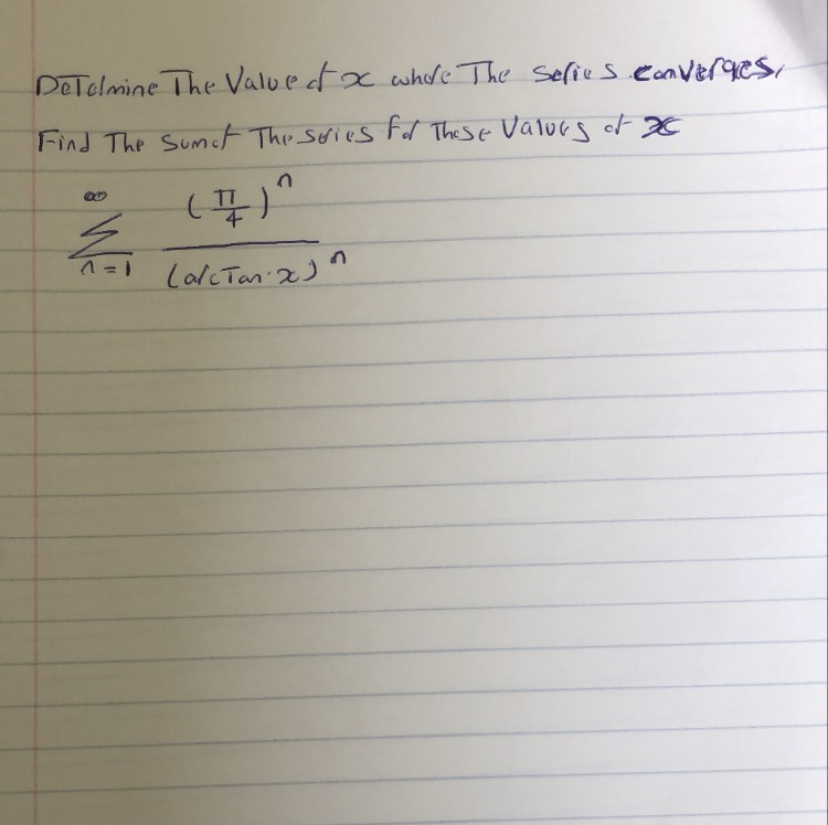 Determine The Value of x where The Series converges,
Find The Sum of The series for These Values of x
∞ (π/4)^n
Σ
n=1 (arcTan x)^n